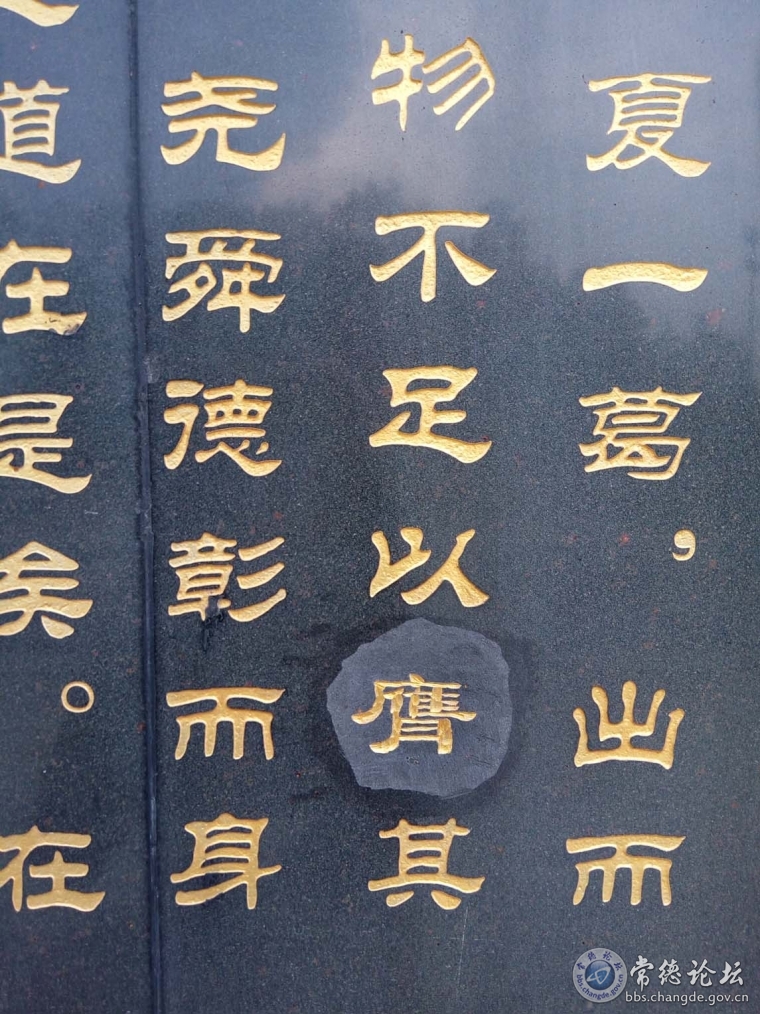 夏一葛，出而
物不足以膺其
尧舜德彰而身
道在是矣。在
常德论坛
bbs.changde.gov.cn